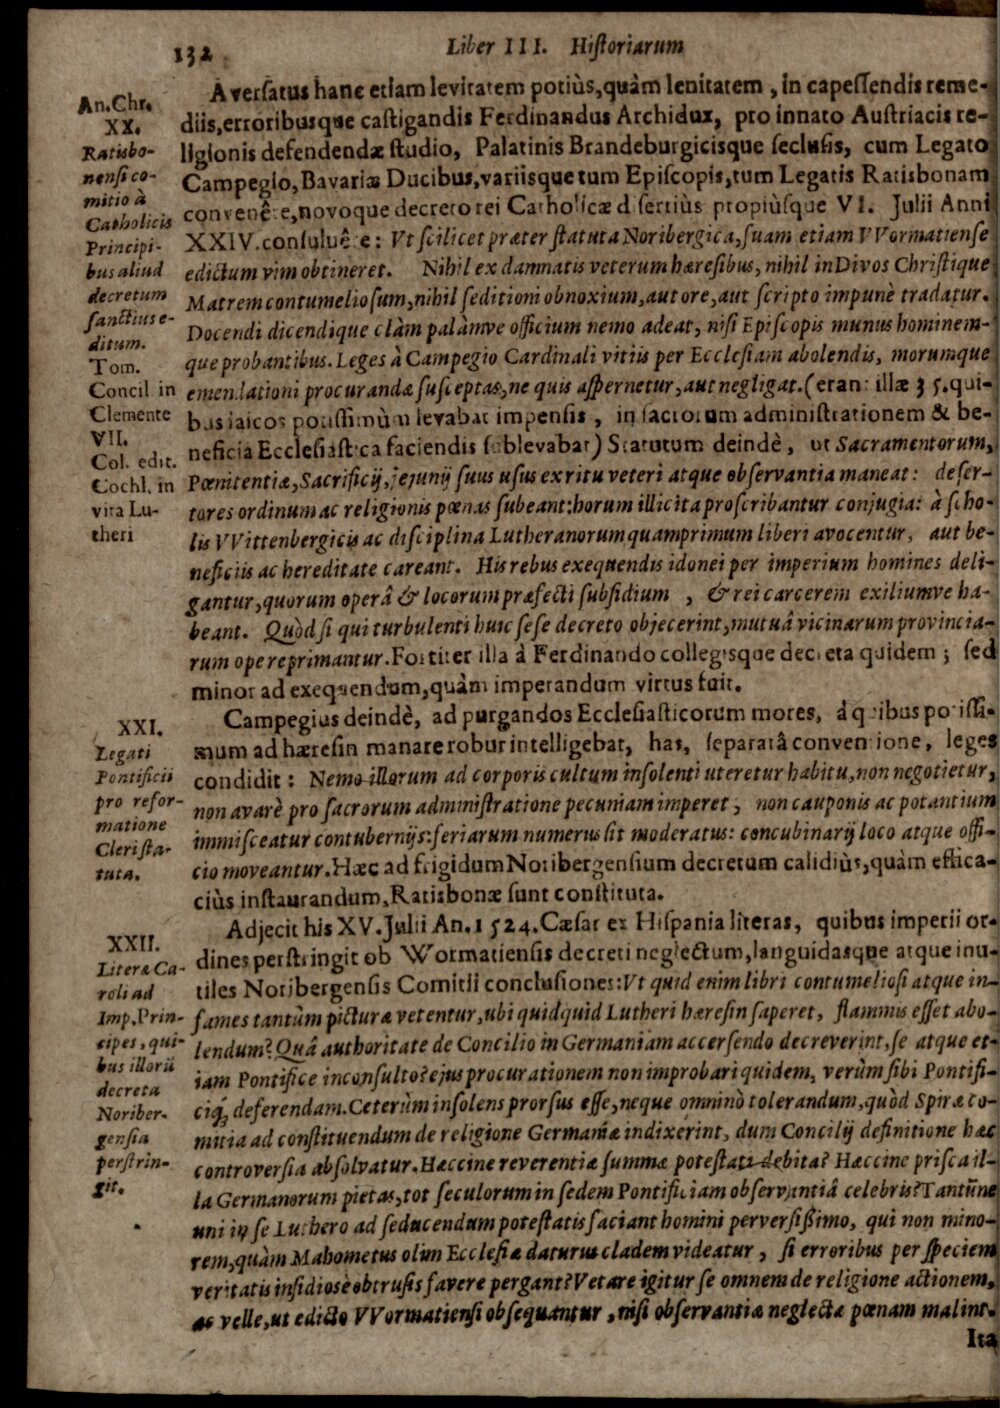 132
Liber III. Hiſtoriarum
An.Chr.
XX.
Ratisbo-
nenſi co-
mitio à
Catholicis
Principi-
bus aliud
decretum
ſanctius e-
ditum.
Tom.
Concil in
Clemente
VII.
Col. edit.
Cochl. in
vita Lu-
theri
Averſatus hanc etiam levitatem potiùs,quàm lenitatem , in capeſſendis reme-
diis,erroribusque caſtigandis Ferdinandus Archidux, pro innato Auſtriacis re-
ligionis defendendæ ſtudio, Palatinis Brandeburgicisque ſecluſis, cum Legato
Campegio,Bavariæ Ducibus,variisque tum Epiſcopis,tum Legatis Ratisbonam
convenêre,novoque decreto rei Catholicæ diſertiùs propiùſque VI. Julii Anni
XXIV.conſuluêre: Vt ſcilicet præter ſtatuta Noribergica,ſuam etiam VVormatienſe
edictum vim obtineret. Nihil ex damnatis veterum hæreſibus, nihil in Divos Chriſtique
Matrem contumelioſum,nihil ſeditioni obnoxium,aut ore,aut ſcripto impunè tradatur.
Docendi dicendique clàm palàmve officium nemo adeat, niſi Epiſcopis munus hominem-
que probantibus. Leges à Campegio Cardinali vitiis per Eccleſiam abolendis, morumque
emendationi procurandæ ſuſceptas,ne quis aſpernetur,aut negligat.(erant illæ 35.qui-
bus laicos potiſſimùm levabat impenſis , in ſacrorum adminiſtrationem & be-
neficia Eccleſiaſtica faciendis ſublevabat) Statutum deindè, ut Sacramentorum,
Pœnitentiæ,Sacrificij,jejunij ſuus uſus ex ritu veteri atque obſervantia maneat: deſer-
tores ordinum ac religionis pœnas ſubeant:horum illicita proſcribantur conjugia: à ſcho-
lis VVittenbergicis ac diſciplina Lutheranorum quamprimum liberi avocentur, aut be-
neficiis ac hereditate careant. His rebus exequendis idonei per imperium homines deli-
gantur,quorum operâ & locorum præfecti ſubſidium , & rei carcerem exiliumve ha-
beant. Quòd ſi qui turbulenti huic ſeſe decreto objecerint,mutuâ vicinarum provincia-
rum ope reprimantur.Fortiter illa à Ferdinando collegisque decreta quidem ; ſed
minor ad exequendum,quàm imperandum virtus fuit.
XXI.
Legati
Pontificii
pro refor-
matione
Cleri ſta-
tuta.
Campegius deindè, ad purgandos Eccleſiaſticorum mores, à quibus potiſſi-
mum ad hæreſin manare robur intelligebat, has, ſeparatâ conventione, leges
condidit: Nemo illorum ad corporis cultum inſolenti uteretur habitu,non negotietur,
non avarè pro ſacrorum adminiſtratione pecuniam imperet , non cauponis ac potantium
immiſceatur contubernijs:feriarum numerus ſit moderatus: concubinarij loco atque offi-
cio moveantur.Hæc ad frigidum Noribergenſium decretum calidiùs,quàm effica-
ciùs inſtaurandum,Ratisbonæ ſunt conſtituta.
XXII.
Literæ Ca-
roli ad
Imp.Prin-
cipes, qui-
bus illorū
decreta
Noriber-
genſia
perſtrin-
git.
Adjecit his XV.Julii An.1524.Cæſar ex Hiſpania literas, quibus imperii or-
dines perſtringit ob Wormatienſis decreti neglectum,languidasque atque inu-
tiles Noribergenſis Comitii concluſiones:Vt quid enim libri contumelioſi atque in-
fames tantùm picturæ vetentur,ubi quidquid Lutheri hæreſin ſaperet, flammis eſſet abo-
lendum?Quâ authoritate de Concilio in Germaniam accerſendo decreverint,ſe atque et-
iam Pontifice inconſulto?ejus procurationem non improbari quidem, verùm ſibi Pontifi-
ciq́; deferendam.Ceterùm inſolens prorſus eſſe,neque omninò tolerandum,quòd Spiræ co-
mitia ad conſtituendum de religione Germaniæ indixerint, dum Concilij definitione hæc
controverſia abſolvatur.Hæccine reverentia ſummæ poteſtati debita? Hæccine priſca il-
la Germanorum pietas,tot ſeculorum in ſedem Pontificiam obſervantiâ celebris?Tantūne
uni in ſe Luthero ad ſeducendum poteſtatis faciant homini perverſiſſimo, qui non mino-
rem,quàm Mahometus olim Eccleſiæ daturus cladem videatur , ſi erroribus per ſpeciem
veritatis inſidiosè obtruſis favere pergant?Vetare igitur ſe omnem de religione actionem,
ac velle,ut edicto VVormatienſi obſequantur ,niſi obſervantiæ neglectæ pœnam malint.
Ita